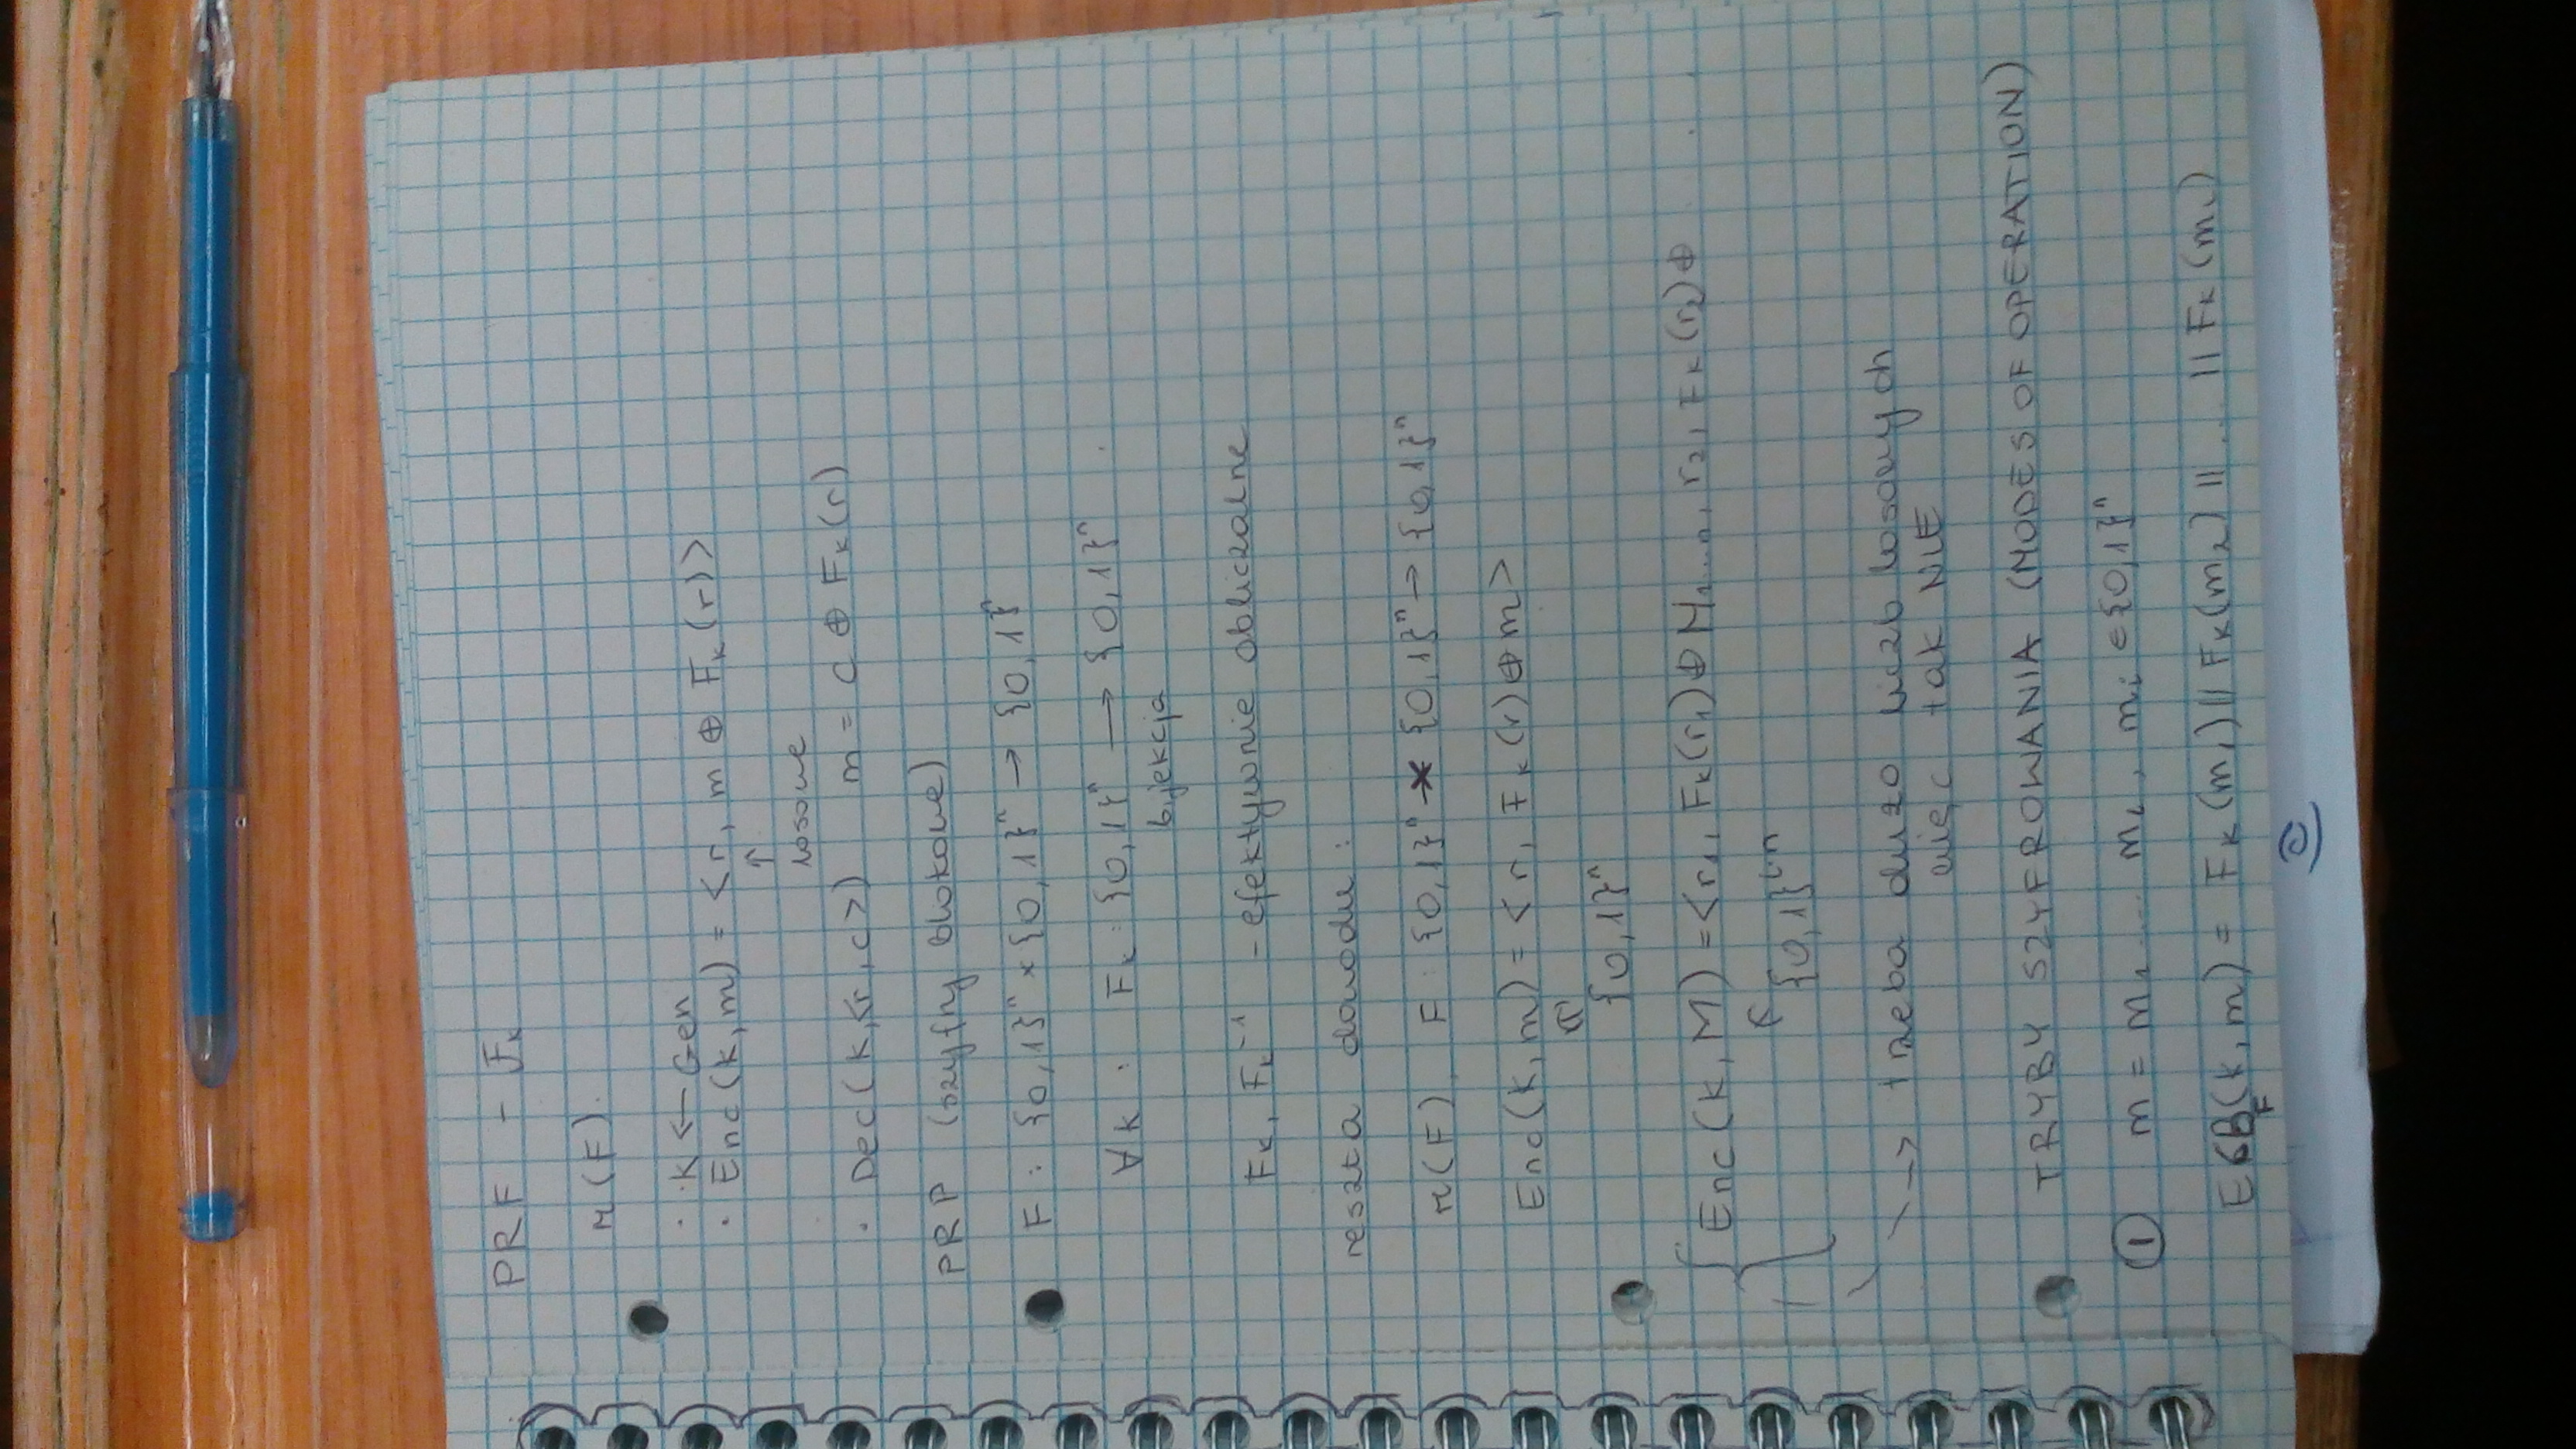 PRF - Fₖ
π(F).
· K ← Gen
· Enc(k, m) = <r, m ⊕ Fₖ(r)>
↑
losowe
· Dec(k, <r, c>) m = c ⊕ Fₖ(r)
PRP (szyfry blokowe)
F : {0,1}ⁿ × {0,1}ⁿ → {0,1}ⁿ
∀k : Fₖ : {0,1}ⁿ → {0,1}ⁿ
bijekcja
Fₖ, Fₖ⁻¹ - efektywnie obliczalne
reszta dowodu:
π(F) F : {0,1}ⁿ × {0,1}ⁿ → {0,1}ⁿ
Enc(k, m) = <r, Fₖ(r) ⊕ m>
{0,1}ⁿ
Enc(k, M) = <r₁, Fₖ(r₁) ⊕ M₁....., r₂, Fₖ(r₂) ⊕
{0,1}ᴸ·ⁿ
→ trzeba dużo liczb losowych
więc tak NIE
TRYBY SZYFROWANIA (MODES OF OPERATION)
① m = m₁ ..... mʟ, mᵢ ∈ {0,1}ⁿ
(k, m) = Fₖ(m₁) || Fₖ(m₂) || ... || Fₖ(mʟ)